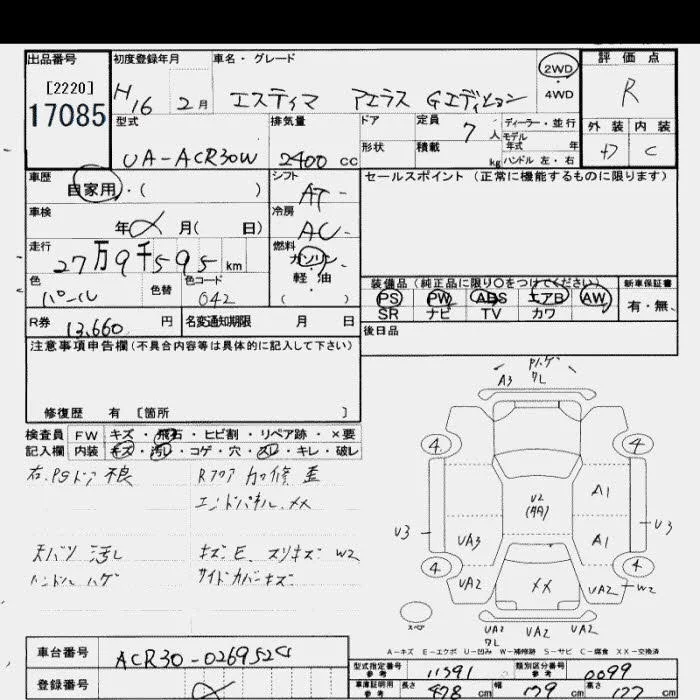 出品番号
[2220]
17085
初度登録年月
H16 2月
車名・グレード
エスティマ アエラス Gエディション
2WD
4WD
評価点
R
外装 内装
C
型式
UA-ACR30W
排気量
2400 cc
ドア
形状
定員
7人
積載
kg
ディーラー・並行
モデル
年式 年
ハンドル 左・右
車歴
自家用・( )
車検
年 月( 日)
走行
27万9千595km
色
パール
色替
色コード
042
シフト
AT
冷房
AC
燃料
ガソリン
軽油
( )
セールスポイント (正常に機能するものに限ります)
装備品 (純正品に限り○をつけてください)
PS PW ABS エアB AW
SR ナビ TV カワ
新車保証書
有・無
後日品
R券 13,660 円
名変通知期限 月 日
注意事項申告欄(不具合内容等は具体的に記入して下さい)
修復歴 有 [箇所 ]
検査員 FW キズ・飛石・ヒビ割・リペア跡・×要
記入欄 内装 キズ・汚レ・コゲ・穴・スレ・キレ・破レ
右、PSドア不良
Rフロア
エンドパネル XX
天バリ 汚レ
キズE スリキズ W2
ハンドル ハゲ
サイドカバーキズ
ハゲ
A3 ワレ
4 4
U2
A1
U3 U3
UA3 A1
4 4
UA2 XX UA2 W2
スペア
UA2 UA2 UA2
ワレ
A-キズ E-エクボ U-凹み W-補修跡 S-サビ C-腐食 XX-交換済
車台番号
ACR30-0269524
登録番号
型式指定番号
参考
11591
類別区分番号
参考
0099
車庫証明用
参考
長さ 478 cm
幅 179 cm
高さ 177 cm